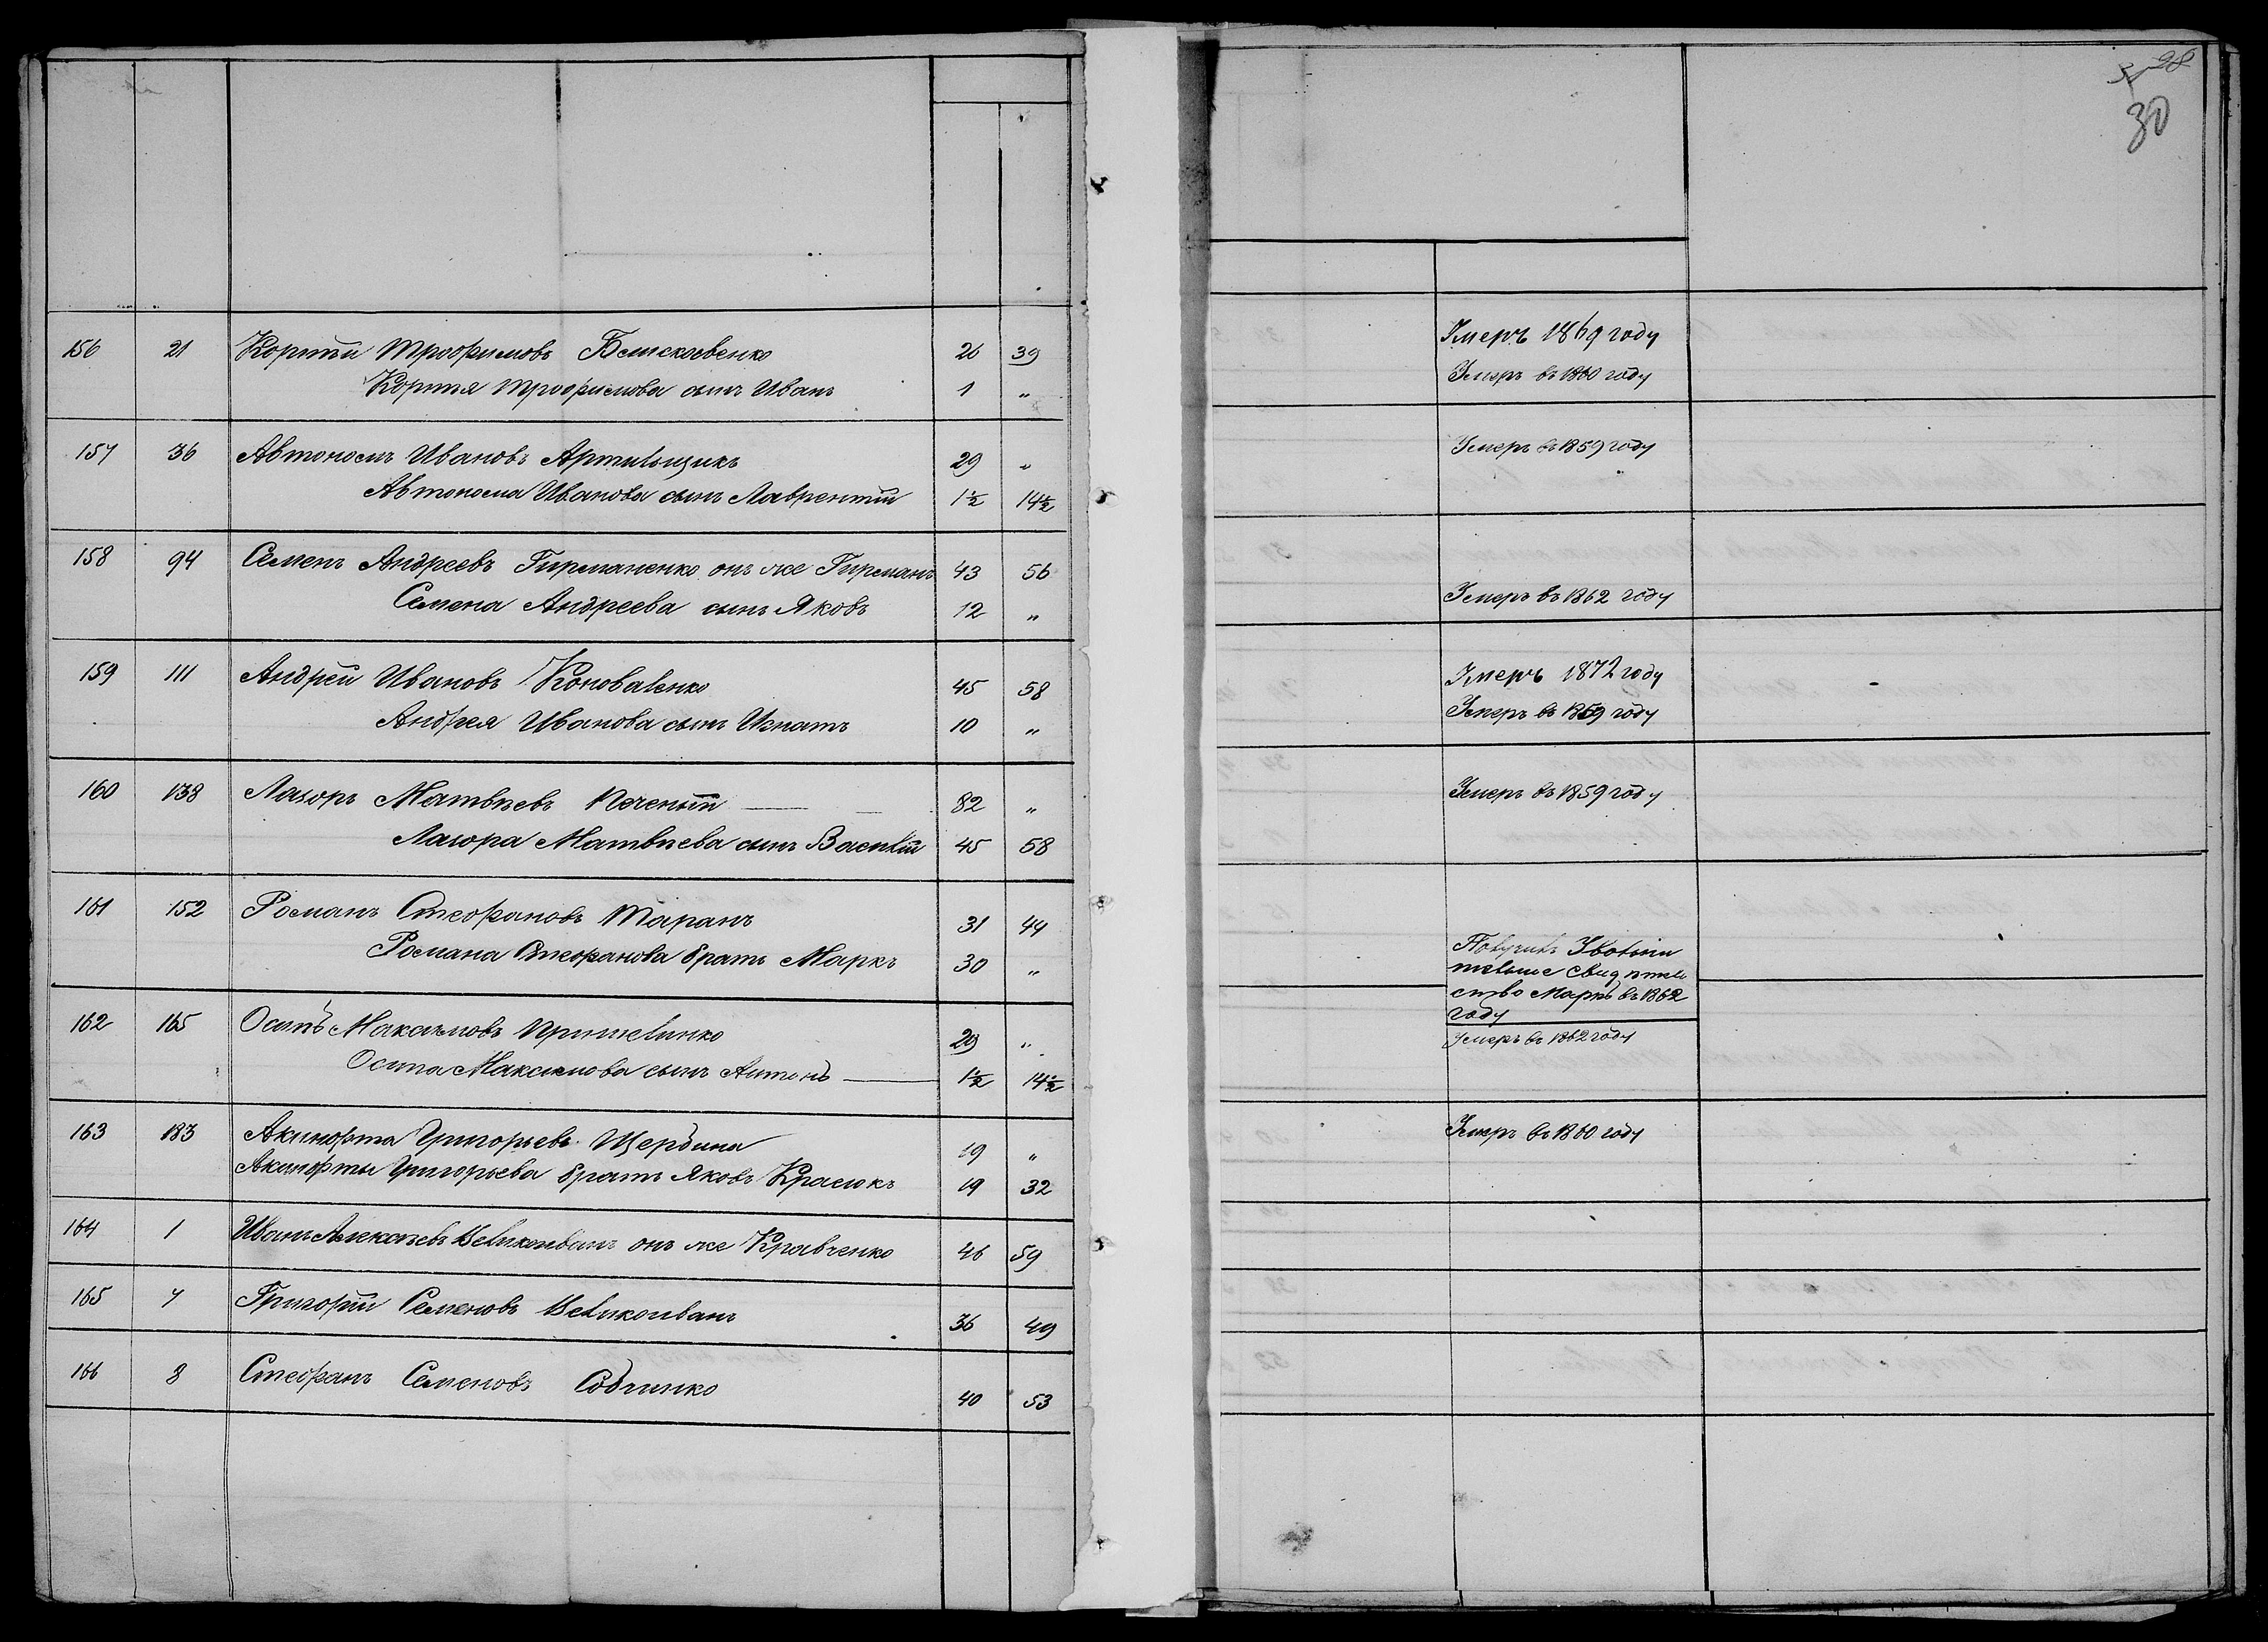 28
30
156 21 Корнѣй Трофимовъ 26 39 Умеръ 1869 году
Корнѣя Трофимова сынъ Иванъ 1 „ Умеръ въ 1860 году
157 36 Автономъ Ивановъ Артильщикъ 29 „ Умеръ въ 1859 году
Автонома Иванова сынъ Лаврентій 1½ 14½
158 94 Семенъ Андреевъ Гирманенко онъ же Гирманъ 43 56
Семена Андреева сынъ Яковъ 12 „ Умеръ въ 1862 году
159 111 Андрей Ивановъ Коноваленко 45 58 Умеръ 1872 году
Андрея Иванова сынъ Игнатъ 10 „ Умеръ въ 1859 году
160 138 Лазоръ Матвѣевъ Печеный 82 „ Умеръ въ 1859 году
Лазора Матвѣева сынъ Василій 45 58
161 152 Романъ Стефановъ Таранъ 31 44
Романа Стефанова братъ Маркъ 30 „ Получилъ Уволни
тельное Свидѣтель
ство Маркъ въ 1862
году
162 165 Осипъ Максимовъ 29 „ Умеръ въ 1862 году
Осипа Максимова сынъ Антонъ 1½ 14½
163 183 Акинфта Григорьевъ Щербина 19 „ Умеръ въ 1860 году
Акинфты Григорьева братъ Яковъ Красюкъ 19 32
164 1 Иванъ Алексѣевъ Великоиванъ онъ же Кравченко 46 59
165 7 Григорій Семеновъ Великоиванъ 36 49
166 8 Стефанъ Семеновъ 40 53